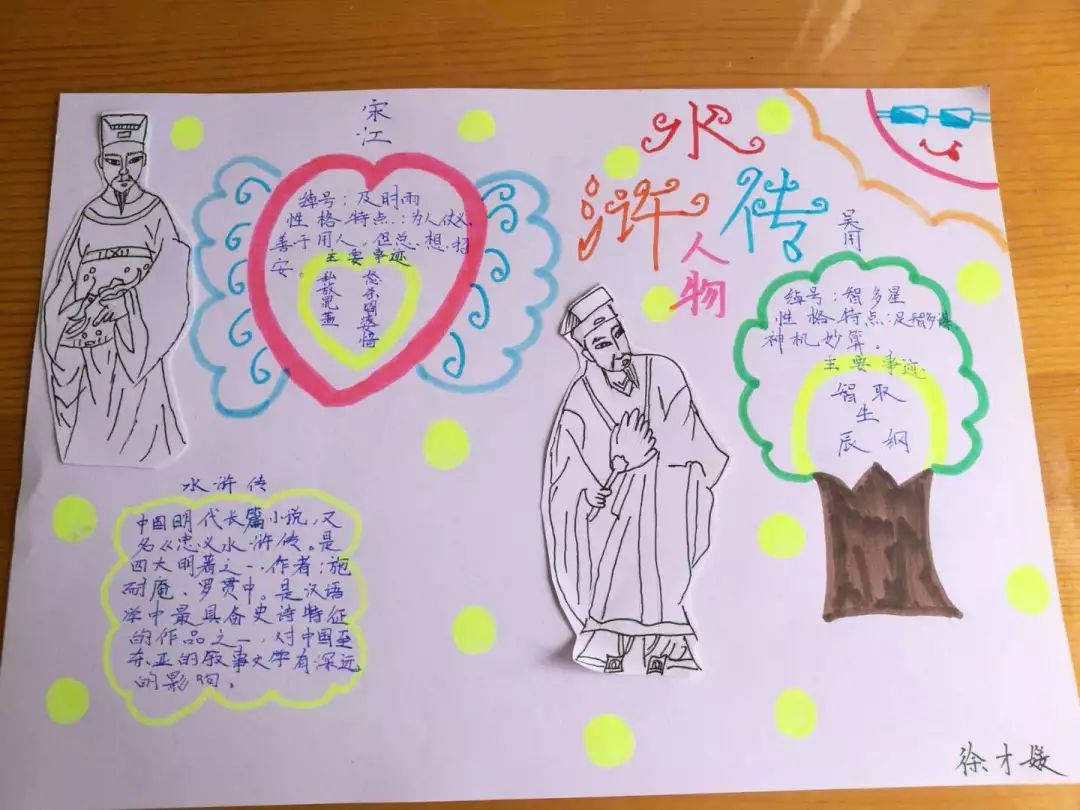 水
浒传
人物
宋江
绰号：及时雨
性格特点：为人仗义，
善于用人，但总想招
安。
主要事迹
私放晁盖
怒杀阎婆惜
吴用
绰号：智多星
性格特点：足智多谋，
神机妙算。
主要事迹
智取
生
辰纲
水浒传
中国明代长篇小说，又
名《忠义水浒传。是
四大明著之一，作者：施
耐庵、罗贯中。是汉语
学中最具备史诗特征
的作品之一，对中国至
东亚的叙事文学有深远
的影响。
徐才媛